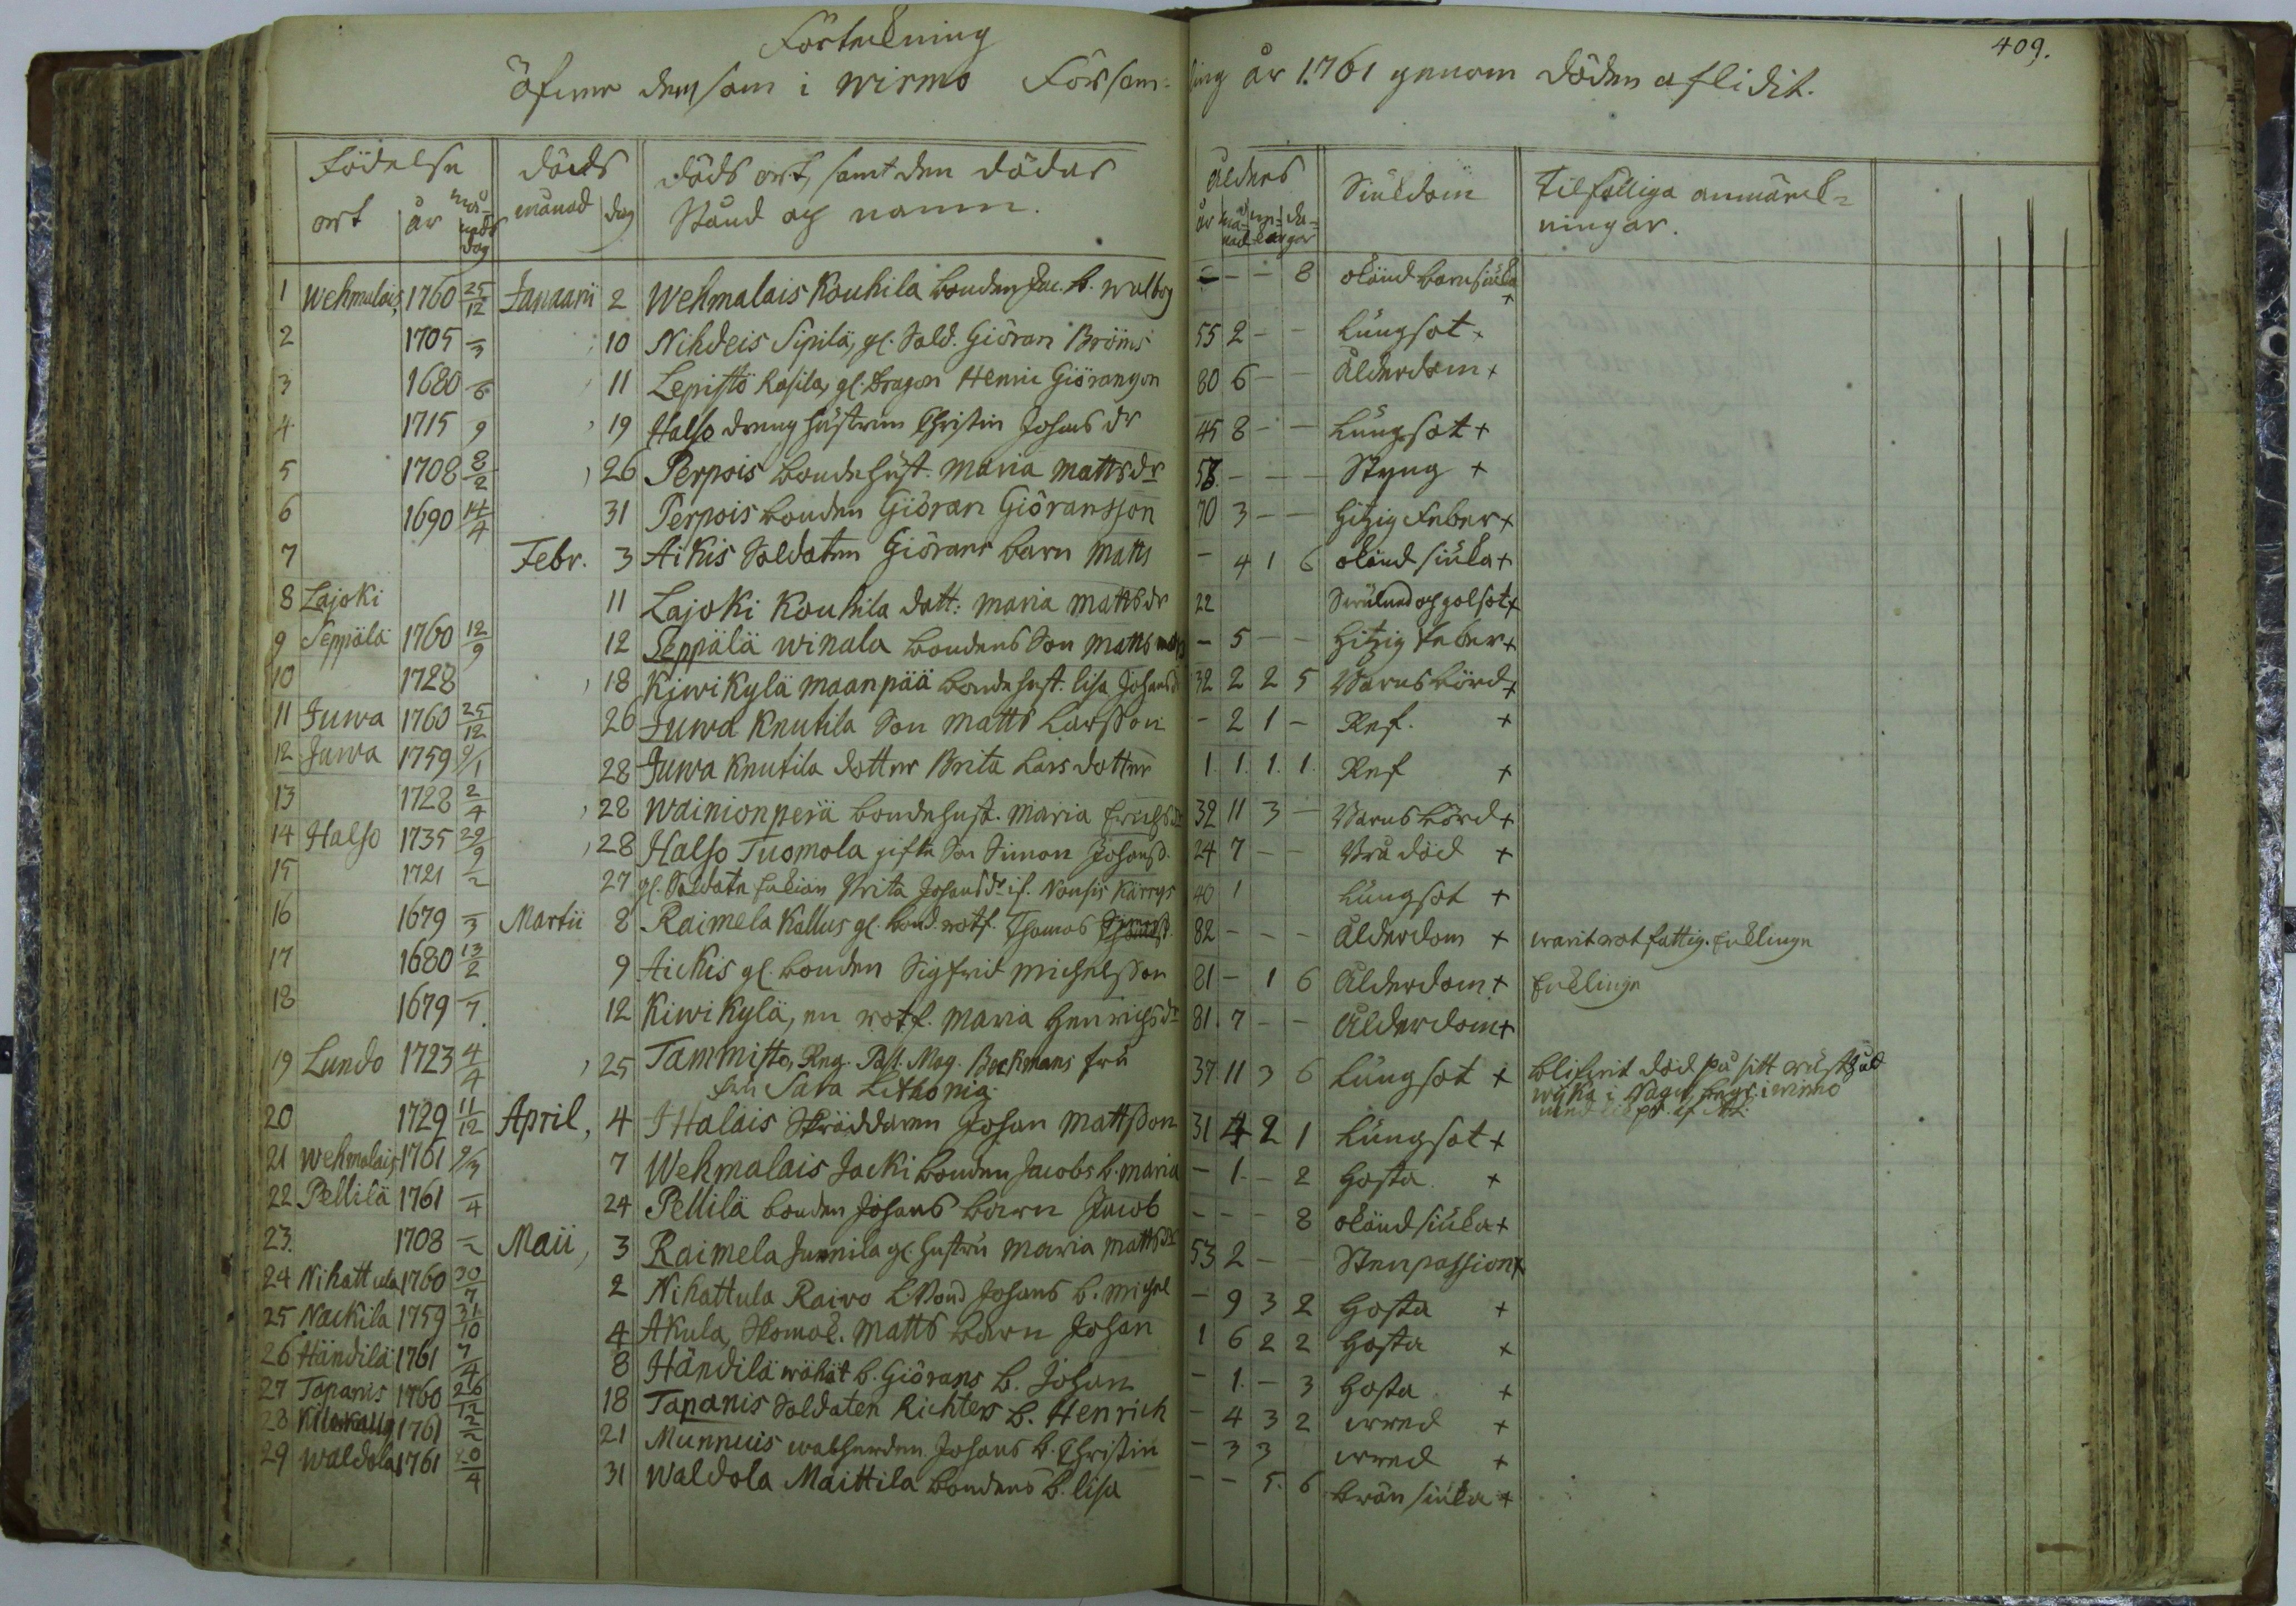 Förtekning
öfver dem som i Wirmo Församling år 1761 genom döden aflidit.
409.
Födelse | döds | döds ort, samt den dödas | Ålders | Siukdom | Tilfälliga anmärck-
ort | år | månads dag | månad | dag | stånd och namn. | år | månad | dagar | ningar.
1 Wehmalais, 1760 25/12 Januarii 2 Wehmalais Kouhila bonden Jac. b. Walbog - - - 8 okänd barnsiuka +
2 1705 -/3 10 Nihdeis Sipilä, gl. Sold. Giöran Bröms 55 2 - - Lungsot +
3 1680 -/6 11 Lepistö Rasila, gl. Dragon Henric Giöransson 80 6 - - Ålderdom +
4 1715 9 19 Halso dreng hustrun Christin Johans dr 45 8 - - Lungsot +
5 1708 8/2 26 Perpois bonde hust. Maria Matts dr 53. - - - Styng +
6 1690 14/4 31 Perpois bonden Giöran Giöransson 70 3 - - hitzig feber +
7 Febr. 3 Aikis Soldaten Giörans barn Matts - 4 1 6 okänd siuka +
8 Lajoki 11 Lajoki Kouhila dott: Maria Matts dr 22 och golsot +
9 Seppälä 1760 12/9 12 Seppälä Winala bondens Son Matts - 5 - - hitzig feber +
10 1728 18 Kiwikylä Maanpää bonde hust. Lisa Johans dr 32 2 2 5 Barnsbörd +
11 Juwa 1760 25/12 26 Juwa Knutila Son Matts Larsson - 2 1 - Ref. +
12 Juwa 1759 9/1 28 Juwa Knutila dotter Brita Lars dotter 1. 1. 1. 1. Ref +
13 1728 2/4 28 Wainionperä bonde hust. Maria Erichs dr 32 11 3 - Barnsbörd +
14 Halso 1735 29/9 28 Halso Tuomola gifte Son Simon Johanss. 24 7 - - Brå död +
15 1721 -/2 27 gl. Soldate Enkian Brita Johans dr if. Nousis Kärrys 40 1 Lungsot +
16 1679 -/3 Martii 8 Raimela Kallus gl. bond. rotf. Thomas 82 - - - Ålderdom + warit rotfattig. Enklinge
17 1680 13/2 9 Aickis gl. bonden Sigfrid Michelsson 81 - 1 6 Ålderdom + Enklinge
18 1679 -/7. 12 Kiwikylä, en rotf. Maria Henrichs dr 81. 7 - - Ålderdom +
19 Lundo 1723 4/4 25 Tammisto, Reg. Past. Mag. Beckmans fru 37. 11 3 6 Lungsot + blifvit död på sitt rusthåld
fru Sara Lithonia. i Nagu, begr. i Wirmo
20 1729 11/12 April, 4 Ihalais Skräddaren Johan Mattsson 31 4 2 1 Lungsot +
21 Wehmalais 1761 9/3 7 Wehmalais Jacki bonden Jacobs b. Maria - 1. - 2 Hosta. +
22 Pellilä 1761 -/4 24 Pellilä bonden Johans barn Jacob - - - 8 okänd siuka +
23. 1708 -/2 Maii, 3 Raimela Junnila gl. hustru Maria Matts dr 53 2 - - Stenpassion +
24 Nihattula 1760 30/7 2 Nihattula Raivo L. Bond Johans b. Michel - 9 3 2 Hosta +
25 Nackila 1759 31/10 4 Akula, Skomak. Matts barn Johan 1 6 2 2 Hosta +
26 Händilä 1761 7/4 8 Händilä wähät b. Giörans b. Johan - 1. - 3 Hosta +
27 Tapanis 1760 26/12 18 Tapanis Soldaten Richters b. Henrich - 4 3 2 wred +
28 1761 2/2 21 Munnuis Johans b. Christin - 3 3 wred +
29 Waldola 1761 20/4 31 Waldola Maittila bondens b. Lisa - - 5. 6 bränsiuka +